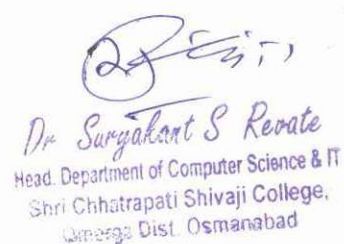 Dr Suryakant S Revate
Head. Department of Computer Science & IT
Shri Chhatrapati Shivaji College,
Omerga Dist. Osmanabad